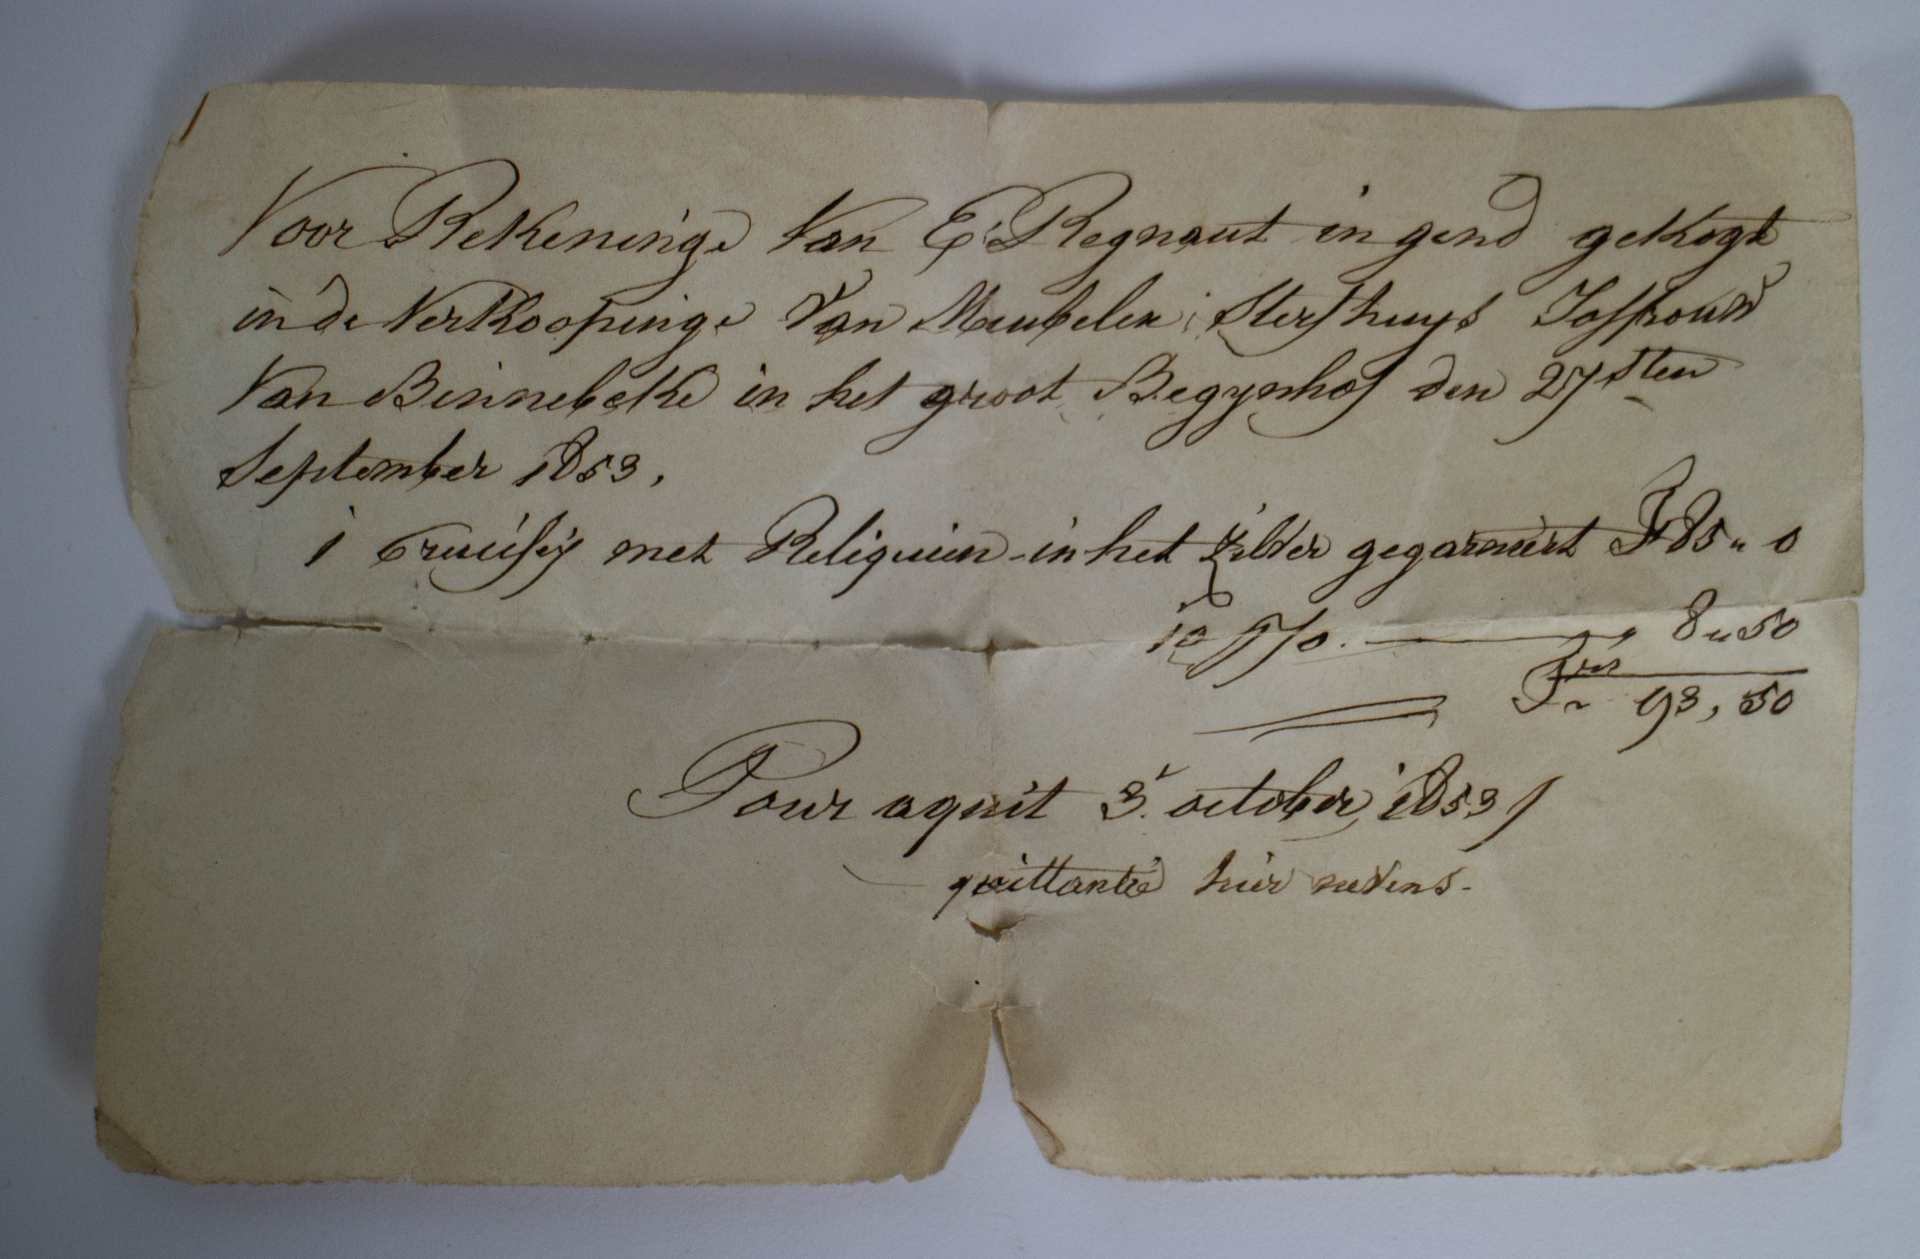 Voor Rekeninge Van E. Regnaut in gend gekogt
in de Verkoopinge Van Meubelen Sterfhuys Joffrouw
Van Binnebeke in het groot Begynhof den 27sten
September 1853,
1 Crucifix met Reliquien in het Zilver gegarniert F 85 " 0
10 p%. — " 8 " 50
Frs 93,50
Pour aquit 3 october 1853
quittantie hier nevens.